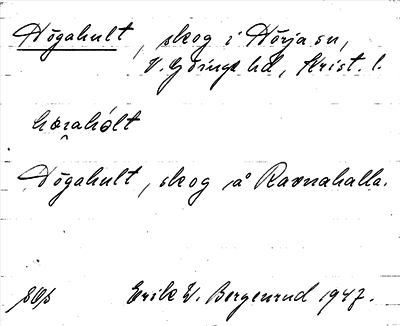 Högahult, skog i Hörja sn,
V. Göinge hd, Krist. l.
Högahult, skog på Ravnahalla.
Erik W. Bergenrud 1947.